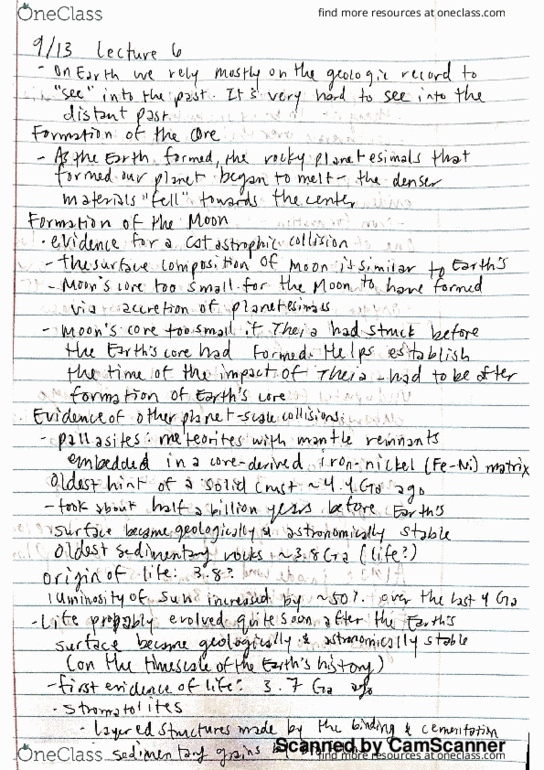 OneClass
find more resources at oneclass.com
9/13 Lecture 6
- On Earth we rely mostly on the geologic record to
"see" into the past. It's very hard to see into the
distant past.
Formation of the Core
- As the Earth formed, the rocky planetesimals that
formed our planet began to melt - the denser
materials "fell" towards the center
Formation of the Moon
· evidence for a catastrophic collision
- the surface composition of Moon is similar to Earth's
- Moon's core too small for the Moon to have formed
via accretion of planetesimals
- Moon's core too small if Theia had struck before
the Earth's core had formed. Helps establish
the time of the impact of Theia - had to be after
formation of Earth's core
Evidence of other planet-scale collisions:
- pallasites: meteorites with mantle remnants
embedded in a core-derived iron-nickel (Fe-Ni) matrix
Oldest hint of a solid crust ~4.4 Ga ago
- took about half a billion years before Earth's
surface became geologically & astronomically stable
Oldest sedimentary rocks ~3.8 Ga (life?)
origin of life: 3.8?
luminosity of sun increased by ~50% over the last 4 Ga
- Life probably evolved quite soon after the Earth's
surface became geologically & astronomically stable
(on the timescale of the Earth's history)
- first evidence of life: 3.7 Ga ago
· stromatolites
- layered structures made by the binding & cementation
sedimentary grains
Scanned by CamScanner
OneClass
find more resources at oneclass.com